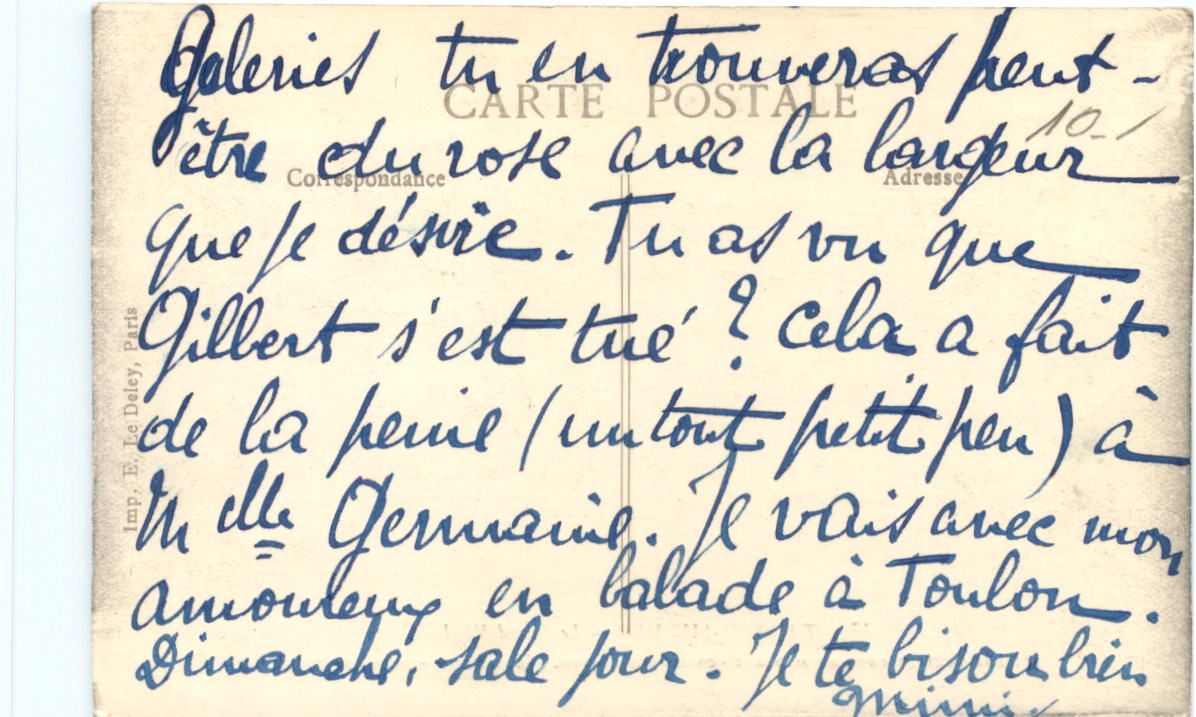 Galeries tu en trouveras peut-
CARTE POSTALE
10-1
être du rose avec la largeur
Correspondance
Adresse
que je désire. Tu as vu que
Gilbert s'est tué ? Cela a fait
de la peine (un tout petit peu) à
Mlle Germaine. Je vais avec mon
amoureux en balade à Toulon.
Dimanche, sale jour. Je te bisou bien
Mimi.
Imp. E. Le Deley, Paris